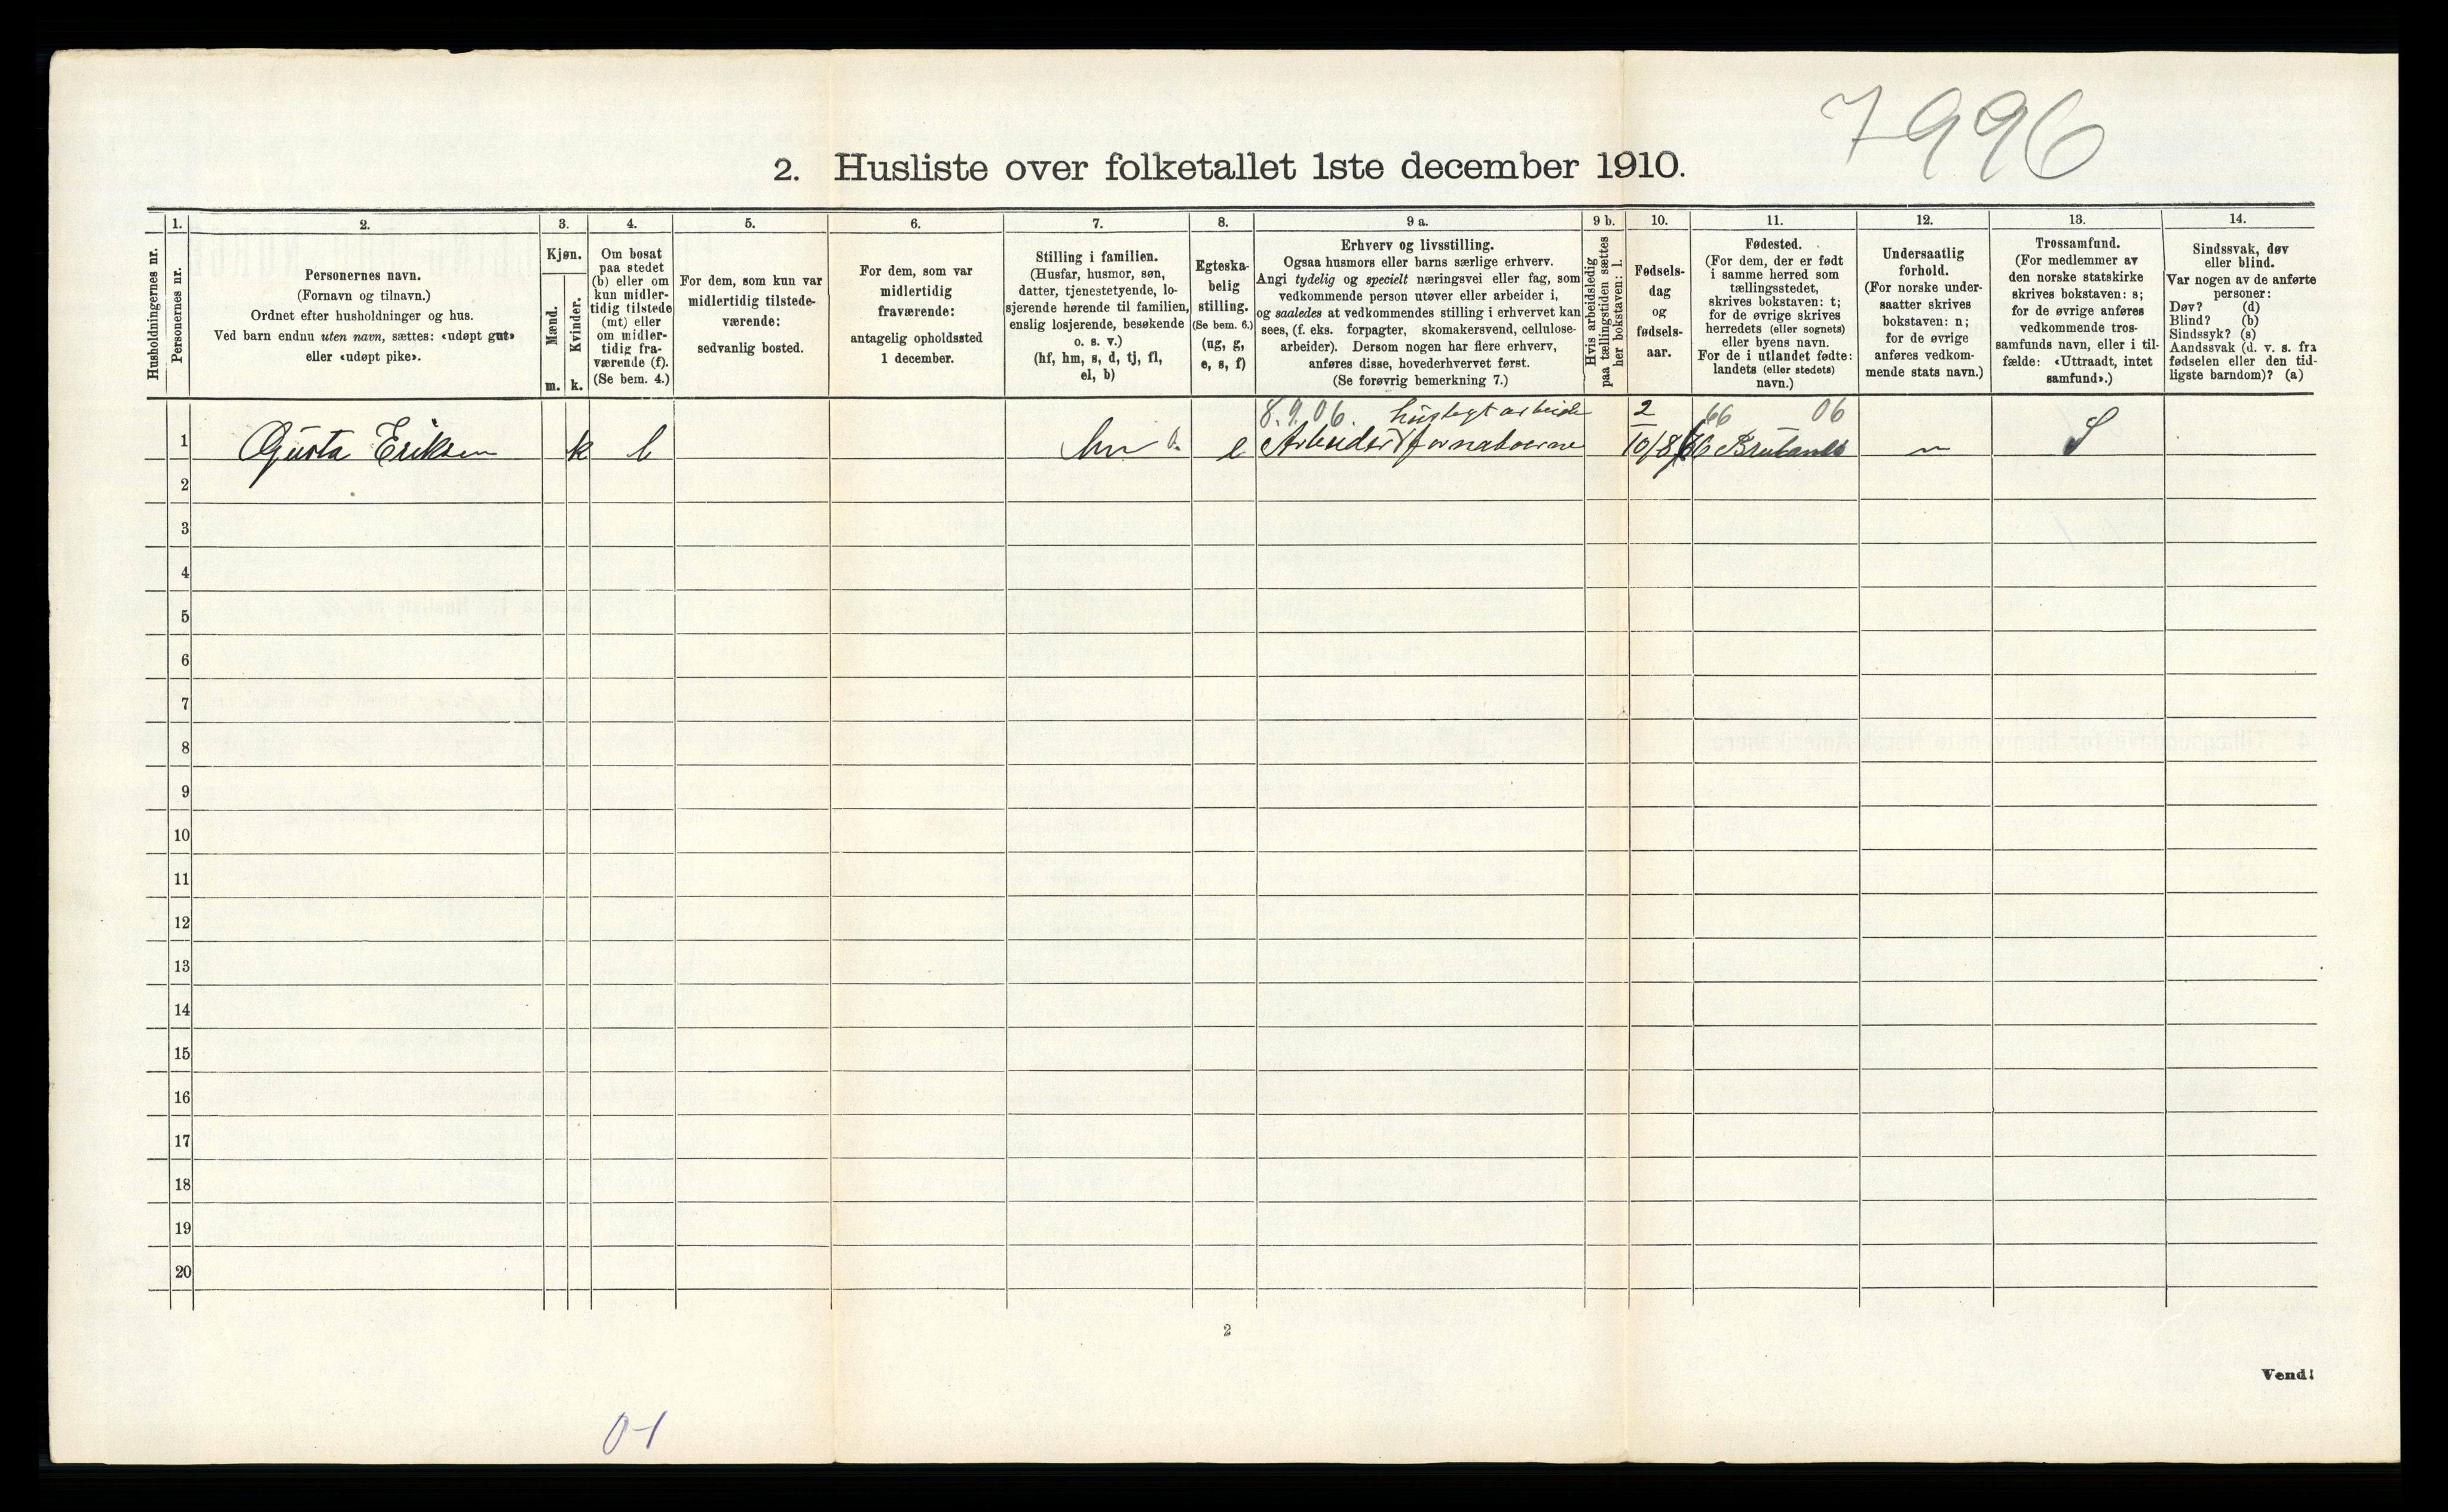 7996
2. Husliste over folketallet 1ste december 1910.
Husholdningernes nr.
1.
Personernes nr.
2.
Personernes navn.
(Fornavn og tilnavn.)
Ordnet efter husholdninger og hus.
Ved barn endnu uten navn, sættes: «udøpt gut»
eller «udøpt pike».
3.
Kjøn.
Mænd.
m.
Kvinder.
k.
4.
Om bosat
paa stedet
(b) eller om
kun midler-
tidig tilstede
(mt) eller
om midler-
tidig fra-
værende (f).
(Se bem. 4.)
5.
For dem, som kun var
midlertidig tilstede-
værende:
sedvanlig bosted.
6.
For dem, som var
midlertidig
fraværende:
antagelig opholdssted
1 december.
7.
Stilling i familien.
(Husfar, husmor, søn,
datter, tjenestetyende, lo-
sjerende hørende til familien,
enslig losjerende, besøkende
o. s. v.)
(hf, hm, s, d, tj, fl,
el, b)
8.
Egteska-
belig
stilling.
(Se bem. 6.)
(ug, g,
e, s, f)
9 a.
Erhverv og livsstilling.
Ogsaa husmors eller barns særlige erhverv.
Angi tydelig og specielt næringsvei eller fag, som
vedkommende person utøver eller arbeider i,
og saaledes at vedkommendes stilling i erhvervet kan
sees, (f. eks. forpagter, skomakersvend, cellulose-
arbeider). Dersom nogen har flere erhverv,
anføres disse, hovederhvervet først.
(Se forøvrig bemerkning 7.)
9 b.
Hvis arbeidsledig
paa tællingstiden sættes
her bokstaven: l.
10.
Fødsels-
dag
og
fødsels-
aar.
11.
Fødested.
(For dem, der er født
i samme herred som
tællingsstedet,
skrives bokstaven: t;
for de øvrige skrives
herredets (eller sognets)
eller byens navn.
For de i utlandet fødte:
landets (eller stedets)
navn.)
12.
Undersaatlig
forhold.
(For norske under-
saatter skrives
bokstaven: n;
for de øvrige
anføres vedkom-
mende stats navn.)
13.
Trossamfund.
(For medlemmer av
den norske statskirke
skrives bokstaven: s;
for de øvrige anføres
vedkommende tros-
samfunds navn, eller i til-
fælde: «Uttraadt, intet
samfund».)
14.
Sindssvak, døv
eller blind.
Var nogen av de anførte
personer:
Døv? (d)
Blind? (b)
Sindssyk? (s)
Aandssvak (d. v. s. fra
fødselen eller den tid-
ligste barndom)? (a)
8.9.06. huslegt arbeide 2 66 06
1 Gusta Eriksen k b hm e Arbeider for naboerne 10/8 66 n S
2
3
4
5
6
7
8
9
10
11
12
13
14
15
16
17
18
19
20
2
Vend!
0-1